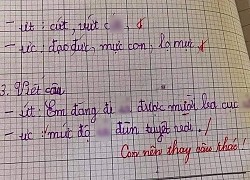 - ưt: cứt, vứt c
- ức: đạo đức, mực con, lọ mực
3. Viết câu
- ứt: Em đang đi được mười lăm cục
- ưc: mức độ đùn tuyệt vời.
Con nên thay câu khác!